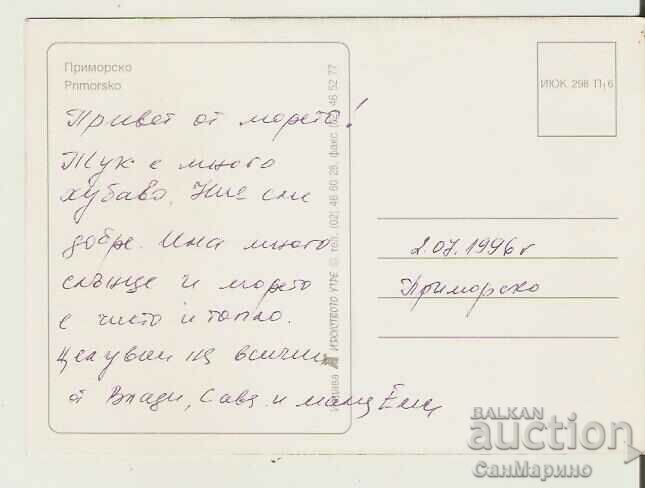 Приморско
Primorsko
Привет от морето!
Тук е много
хубаво. Ние сме
добре. Има много
слънце и морето
е чисто и топло.
Целувки на всички
от Влади, Сава и малц Ели
Издава ИЗКУСТВОТО УТРЕ © тел. (02) 46 60 28, факс (02) 46 52 77
ИЮК 298 П 6
2.07.1996 г
Приморско
BALKAN
auction
СанМарино